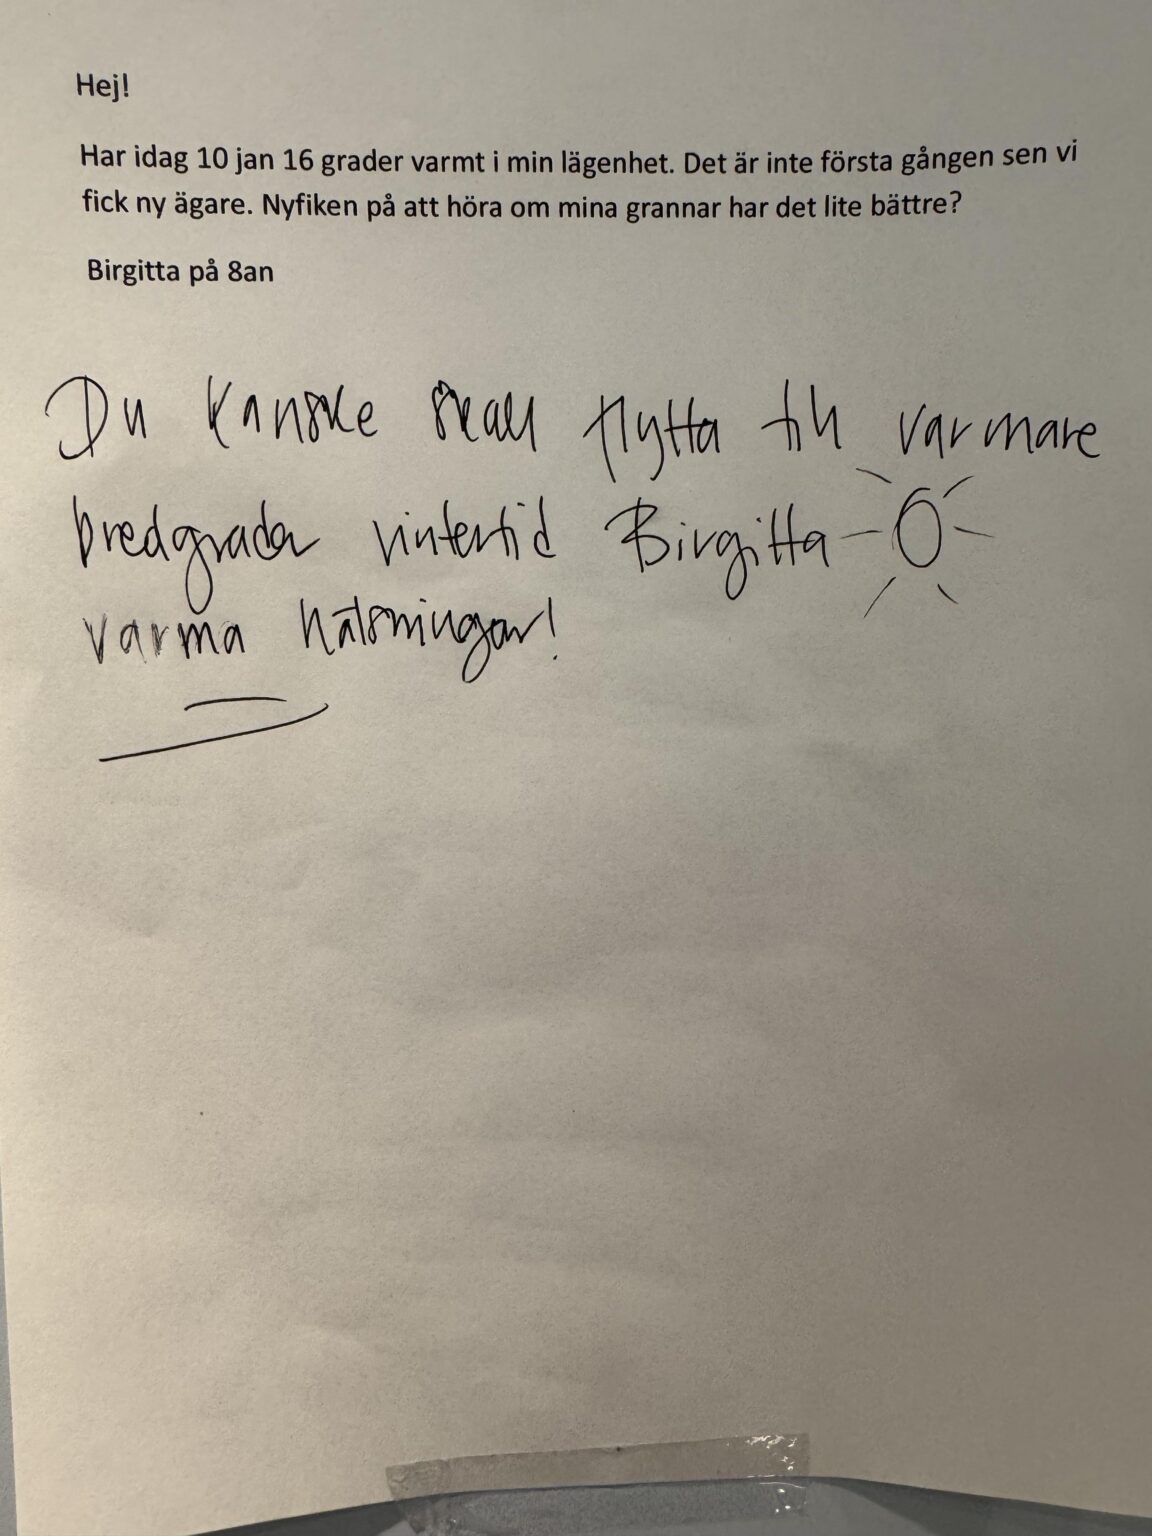 Hej!
Har idag 10 jan 16 grader varmt i min lägenhet. Det är inte första gången sen vi
fick ny ägare. Nyfiken på att höra om mina grannar har det lite bättre?
Birgitta på 8an
Du kanske skall flytta till varmare
bredgrader vintertid Birgitta
varma hälsningar!